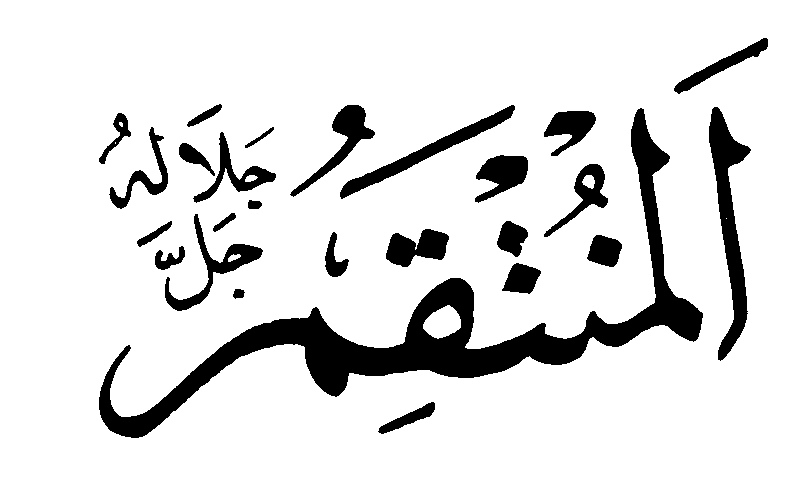 اَلْمُنْتَقِمُ
جَلَّ جَلَالَهُ